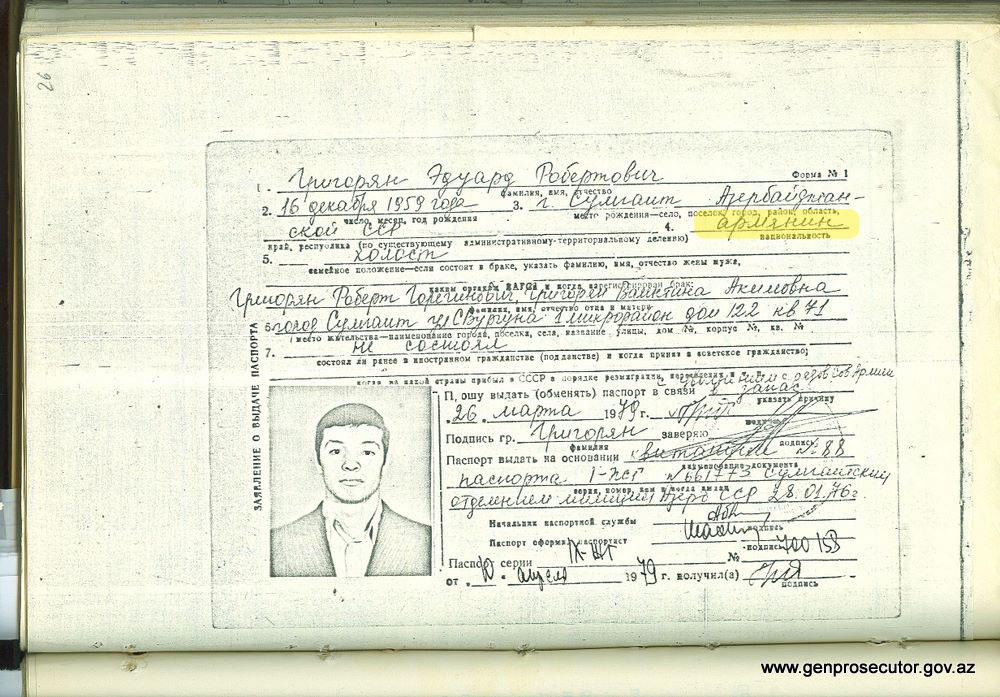 26
Форма № 1
1. Григорян Эдуард Робертович
фамилия, имя, отчество
2. 16 декабря 1959 года 3. г. Сумгаит Азербайджан-
число, месяц, год рождения место рождения—село, поселок, город, район, область,
ской ССР 4. армянин
край, республика (по существующему административно-территориальному делению) национальность
5. холост
семейное положение—если состоит в браке, указать фамилию, имя, отчество жены мужа,
каким органом ЗАГСа и когда зарегистрирован брак:
Григорян Роберт Григорян Акимовна
фамилия, имя, отчество отца и матери
6. город Сумгаит ул С.Вургуна 1 микрорайон дом 122 кв 71
место жительства—наименование города, поселка, села, название улицы, дом №, корпус №, кв. №
7. не состоял
состоял ли ранее в иностранном гражданстве (подданстве) и когда принят в советское гражданство;
когда из какой страны прибыл в СССР в порядке
ЗАЯВЛЕНИЕ О ВЫДАЧЕ ПАСПОРТА
П, ошу выдать (обменять) паспорт в связи с Сов Армии в запас
указать причину
"26" марта 1979 г.
подпись
Подпись гр. Григорян заверяю
фамилия подпись
Паспорт выдать на основании № 88
наименование документа
паспорта № 661773 Сумгаитским
серия, номер, кем и когда выдан
отделением милиции Азерб ССР 28.01.76 г
Начальник паспортной службы
подпись
Паспорт оформил паспортист
подпись
Паспорт серии № 700153
от "10" апреля 1979 г. получил(а)
подпись
www.genprosecutor.gov.az